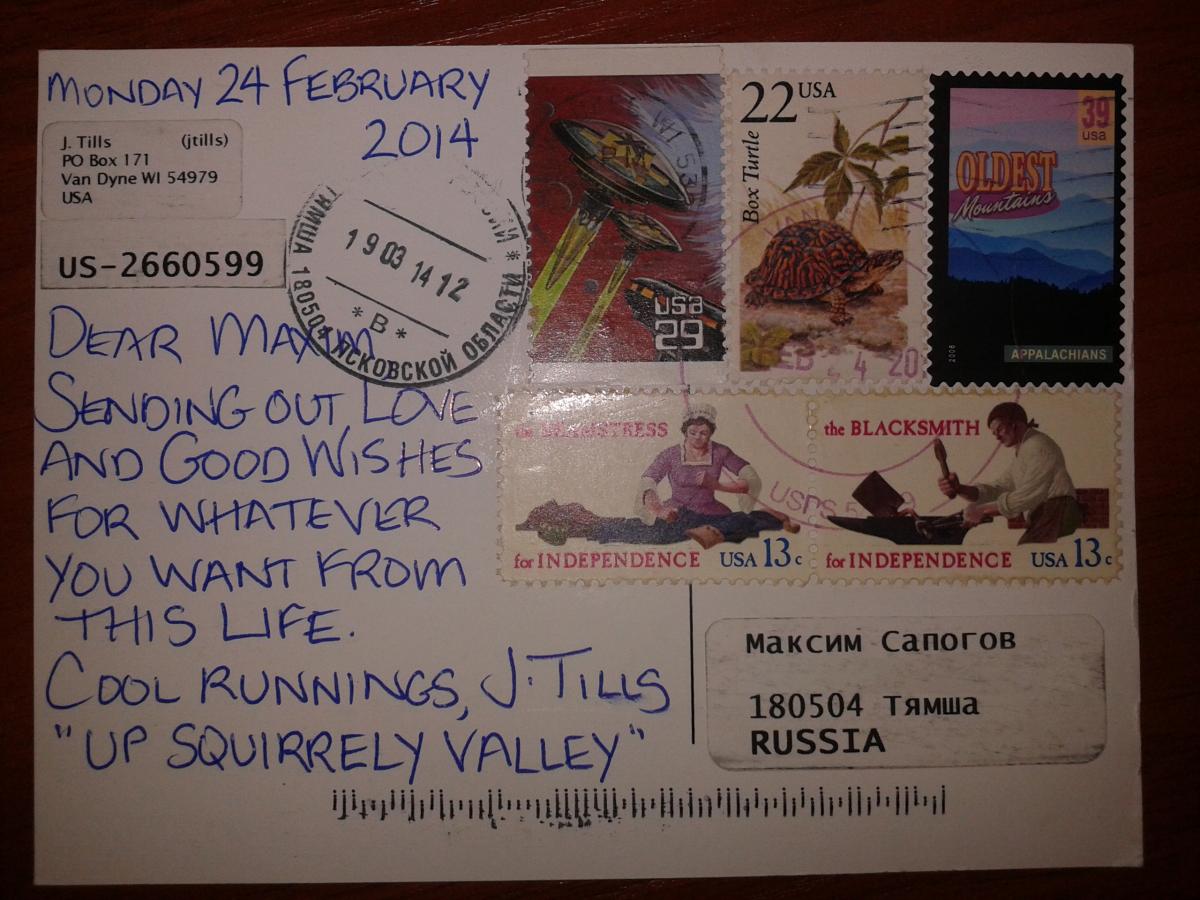 MONDAY 24 FEBRUARY
2014
J. Tills (jtills)
PO Box 171
Van Dyne WI 54979
USA
US-2660599
ТЯМША 180504 ПСКОВСКОЙ ОБЛАСТИ *
19 03 14 12
* В *
DEAR MAXIM
SENDING OUT LOVE
AND GOOD WISHES
FOR WHATEVER
YOU WANT FROM
THIS LIFE.
COOL RUNNINGS, J. TILLS
"UP SQUIRRELY VALLEY"
WI 53
PM
usa
29
22 USA
Box Turtle
39
usa
OLDEST
Mountains
2006
APPALACHIANS
EB 24 20
the SEAMSTRESS
for INDEPENDENCE USA 13c
the BLACKSMITH
for INDEPENDENCE USA 13c
USPS 5
Максим Сапогов
180504 Тямша
RUSSIA